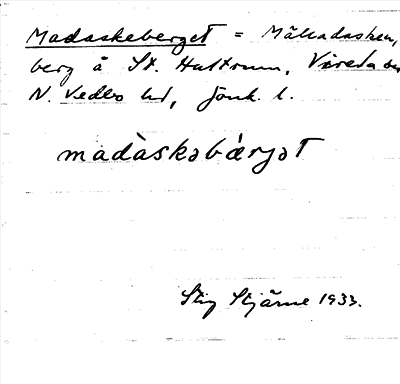 Madaskeberget = Mälladasken,
berg å St. Hultrum, Vireda sn
N. Vedbo hd, Jönk. l.
madàskəbærjət
Stig Stjärne 1933.